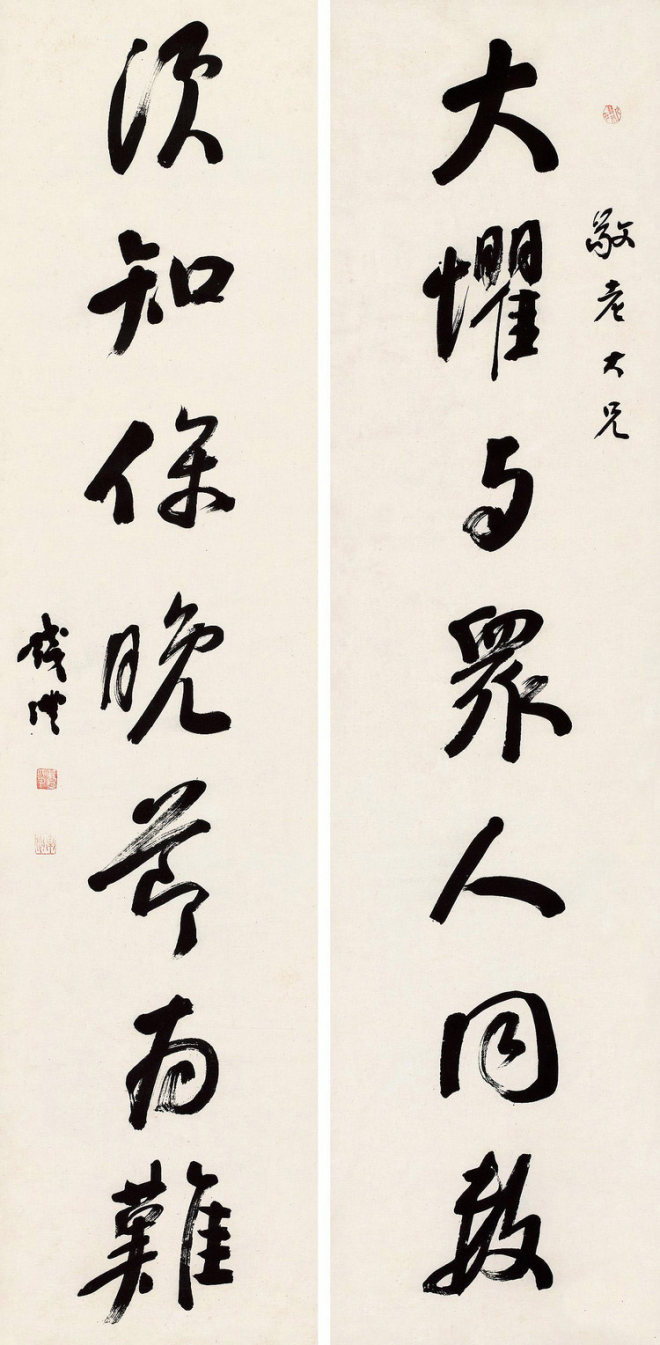 敬老大兄
大懼与眾人同数
須知保晚節為難
錢灃